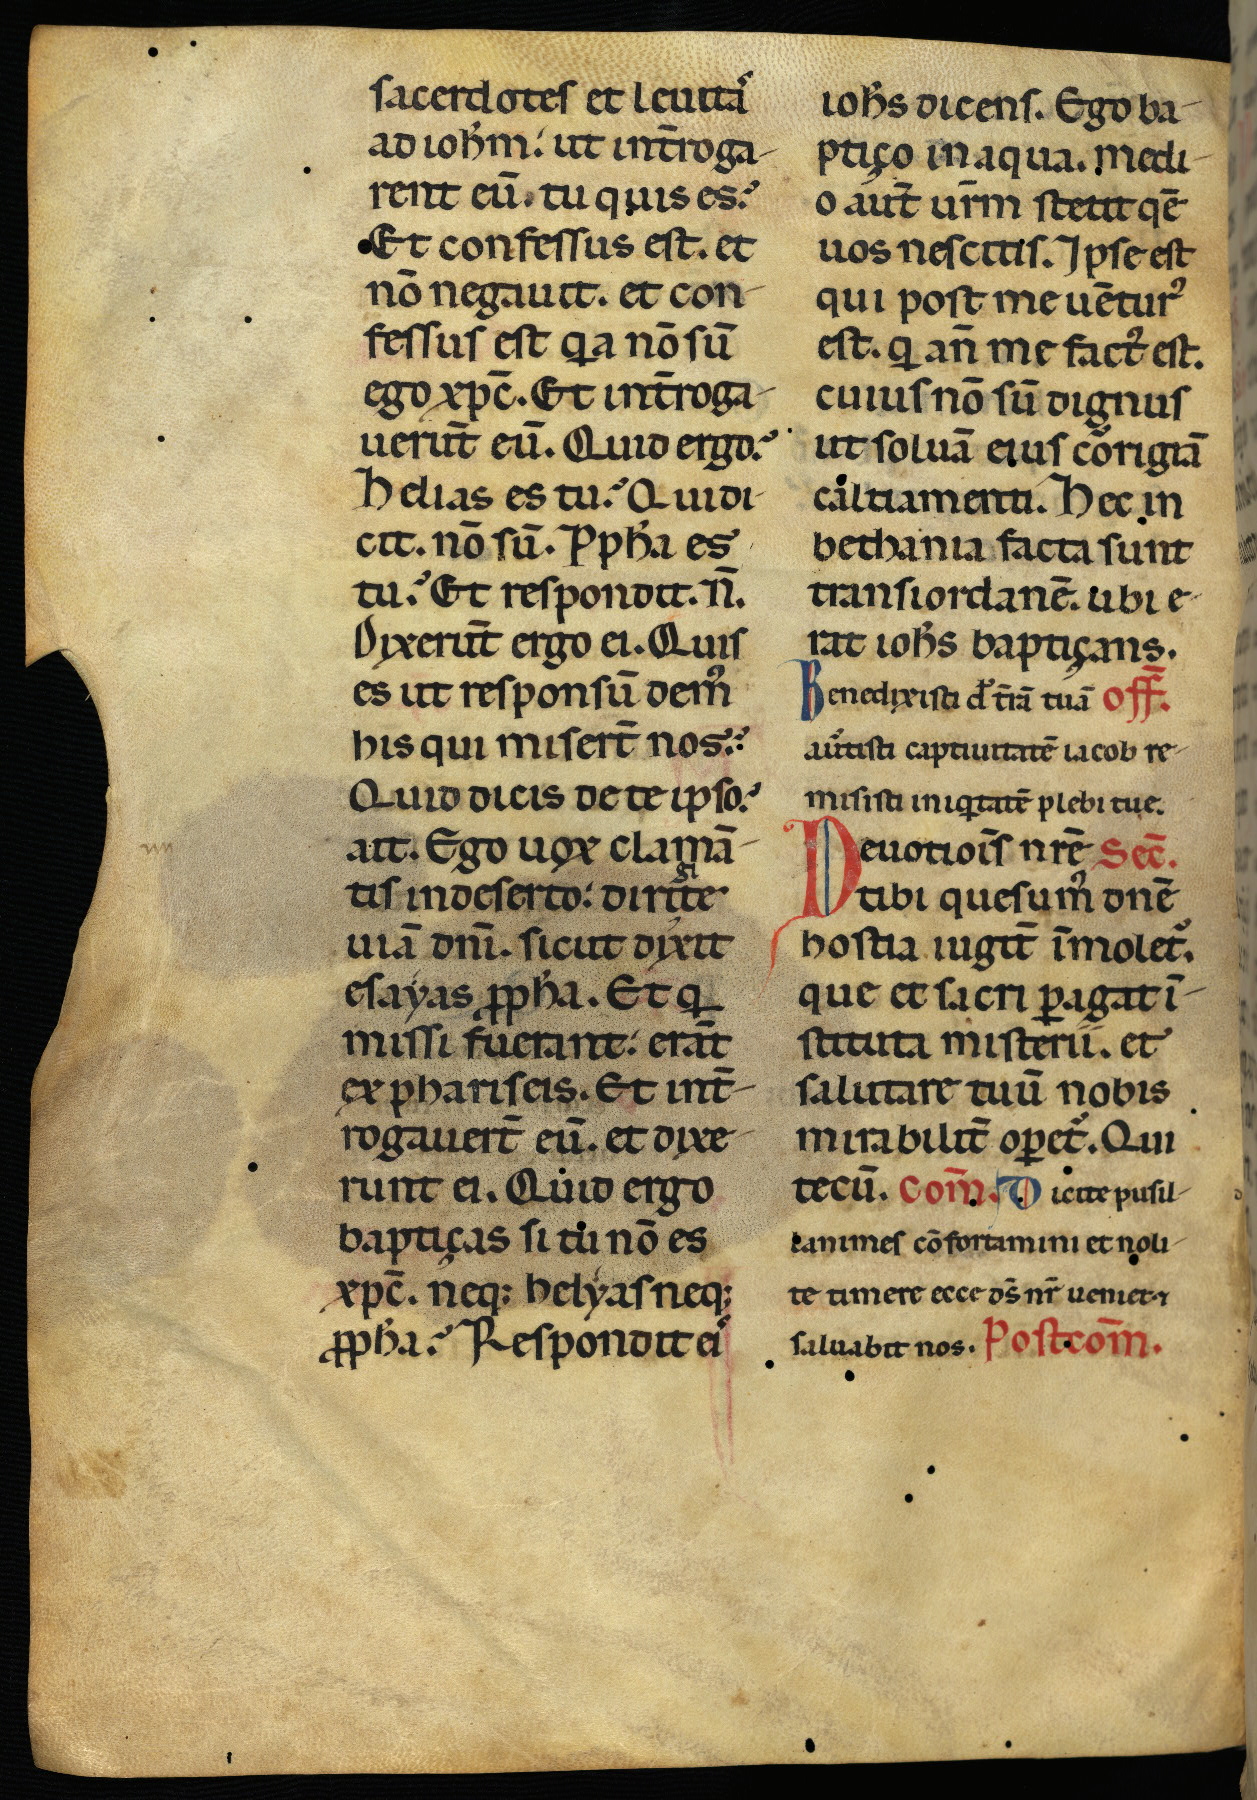 sacerdotes et leuita᷒
ad ioh̅m: ut int̅roga-
rent eu̅. tu quis es?
Et confessus est. et
no̅ negauit. et con-
fessus est q̅a no̅ su̅
ego xpc̅. Et int̅roga-
ueru̅t eu̅. Quid ergo?
Helias es tu? Qui di-
cit. no̅ su̅. Ppha̅ es
tu? Et respondit. n̅.
Dixeru̅t ergo ei. Quis
es ut responsu̅ dem᷒
his qui misert̅ nos?
Quid dicis de te ipso?
ait. Ego uox clama̅-
tis in deserto: dirigite
uia̅ dni̅. sicut dixit
esayas ppha̅. Et q
missi fuerant: era̅t
ex phariseis. Et int̅-
rogauert̅ eu̅. et dixe-
runt ei. Quid ergo
baptiças si tu no̅ es
xpc̅. neq; helyas neq;
ppha̅? Respondit ei᷒
ioh̅s dicens. Ego ba-
ptiço in aqua. medi-
o aut̅ ur̅m stetit qe̅
uos nescitis. Ipse est
qui post me ue̅tur᷒
est. q an̅ me fact᷒ est.
cuius no̅ su̅ dignus
ut solua̅ eius corrigia̅
calciamenti. Hec in
bethania facta sunt
trans iordane̅. ubi e-
rat ioh̅s baptiçans.
Benedixisti d᷒ t̅ra̅ tua̅ off̅.
au᷒tisti captiuitate̅ iacob re-
misisti iniq̅tate̅ plebi tue.
Deuotiois̅ nre̅ Sec̅.
tibi quesum᷒ dne̅
hostia iugit̅ i̅molet᷒.
que et sacri ꝑagat i̅-
stituta misterii. et
salutare tuu̅ nobis
mirabilit̅ oꝑet᷒. Qui
tecu̅. Com̅. Dicite pusil-
lanimes co̅fortamini et noli-
te timere ecce ds̅ nr̅ ueniet ⁊
saluabit nos. Postcom̅.